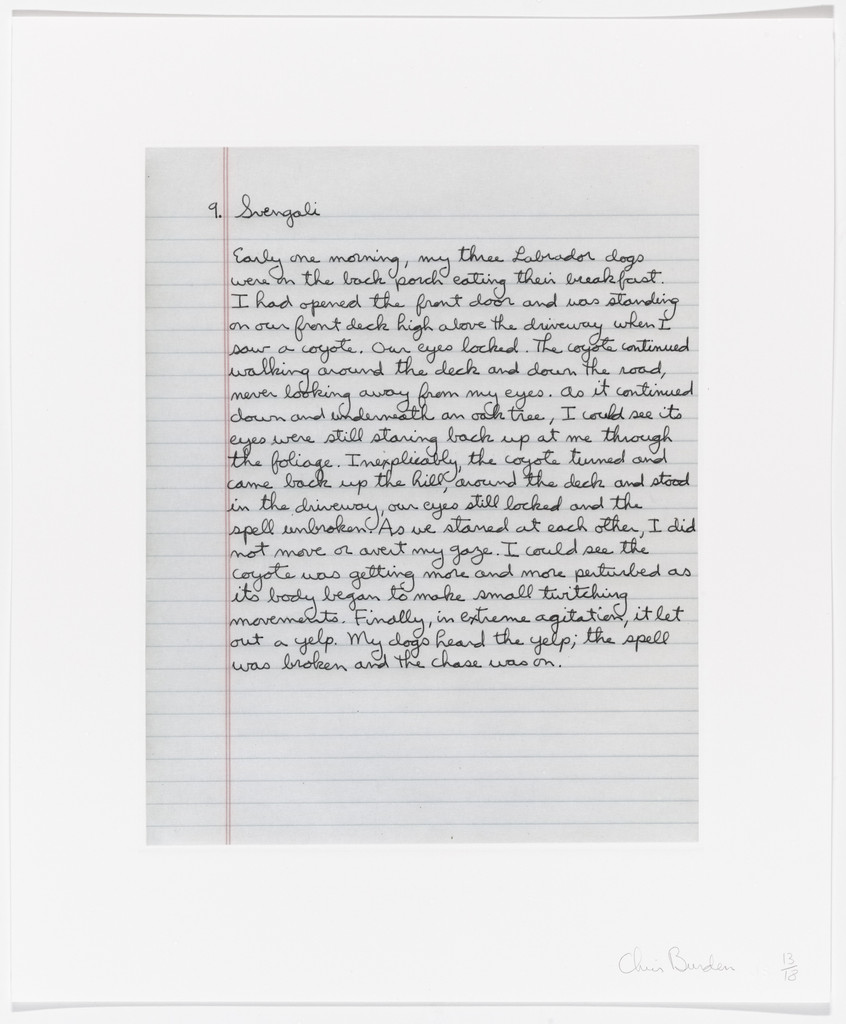 9. Svengali
Early one morning, my three Labrador dogs
were on the back porch eating their breakfast.
I had opened the front door and was standing
on our front deck high above the driveway when I
saw a coyote. Our eyes locked. The coyote continued
walking around the deck and down the road,
never looking away from my eyes. As it continued
down and underneath an oak tree, I could see its
eyes were still staring back up at me through
the foliage. Inexplicably, the coyote turned and
came back up the hill, around the deck and stood
in the driveway, our eyes still locked and the
spell unbroken. As we stared at each other, I did
not move or avert my gaze. I could see the
coyote was getting more and more perturbed as
its body began to make small twitching
movements. Finally, in extreme agitation, it let
out a yelp. My dogs heard the yelp; the spell
was broken and the chase was on.
Chris Burden 13/18